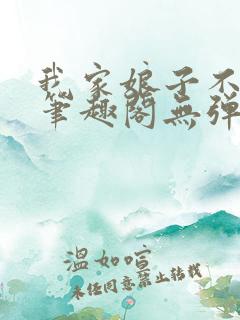 我家娘子不
笔趣阁无弹
溫如喧
未经同意禁止转载